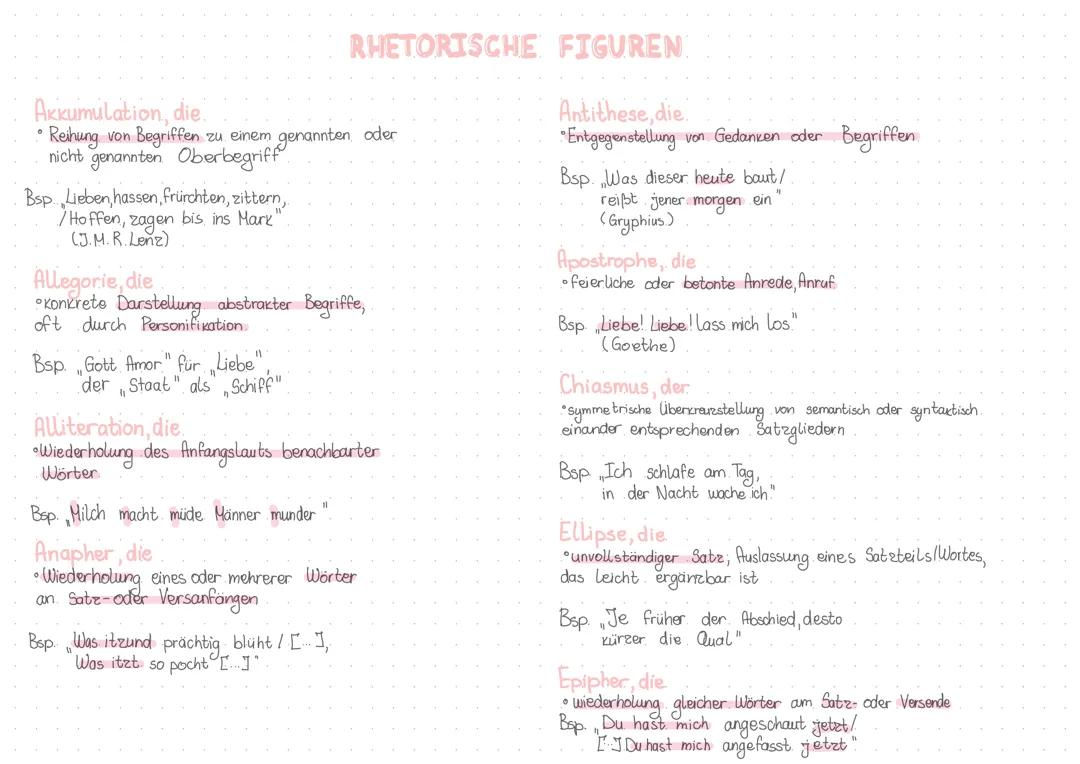 RHETORISCHE FIGUREN
Akkumulation, die
° Reihung von Begriffen zu einem genannten oder
nicht genannten Oberbegriff
Bsp. „Lieben, hassen, frürchten, zittern,
/ Hoffen, zagen bis ins Mark"
(J.M.R. Lenz)
Allegorie, die
° konkrete Darstellung abstrakter Begriffe,
oft durch Personifikation
Bsp. „Gott Amor" für „Liebe",
der „Staat" als „Schiff"
Alliteration, die
° Wiederholung des Anfangslauts benachbarter
Wörter
Bsp. „Milch macht müde Männer munder"
Anapher, die
° Wiederholung eines oder mehrerer Wörter
an Satz- oder Versanfängen
Bsp. „Was itzund prächtig blüht / [...],
Was itzt so pocht [...]"
Antithese, die
° Entgegenstellung von Gedanken oder Begriffen
Bsp. „Was dieser heute baut /
reißt jener morgen ein"
(Gryphius)
Apostrophe, die
° feierliche oder betonte Anrede, Anruf
Bsp. „Liebe! Liebe! lass mich los"
(Goethe)
Chiasmus, der
° symmetrische Überkreuzstellung von semantisch oder syntaktisch
einander entsprechenden Satzgliedern
Bsp. „Ich schlafe am Tag,
in der Nacht wache ich"
Ellipse, die
° unvollständiger Satz; Auslassung eines Satzteils/Wortes,
das leicht ergänzbar ist
Bsp. „Je früher der Abschied, desto
kürzer die Qual"
Epipher, die
° wiederholung gleicher Wörter am Satz- oder Versende
Bsp. „Du hast mich angeschaut jetzt /
[...] Du hast mich angefasst jetzt"